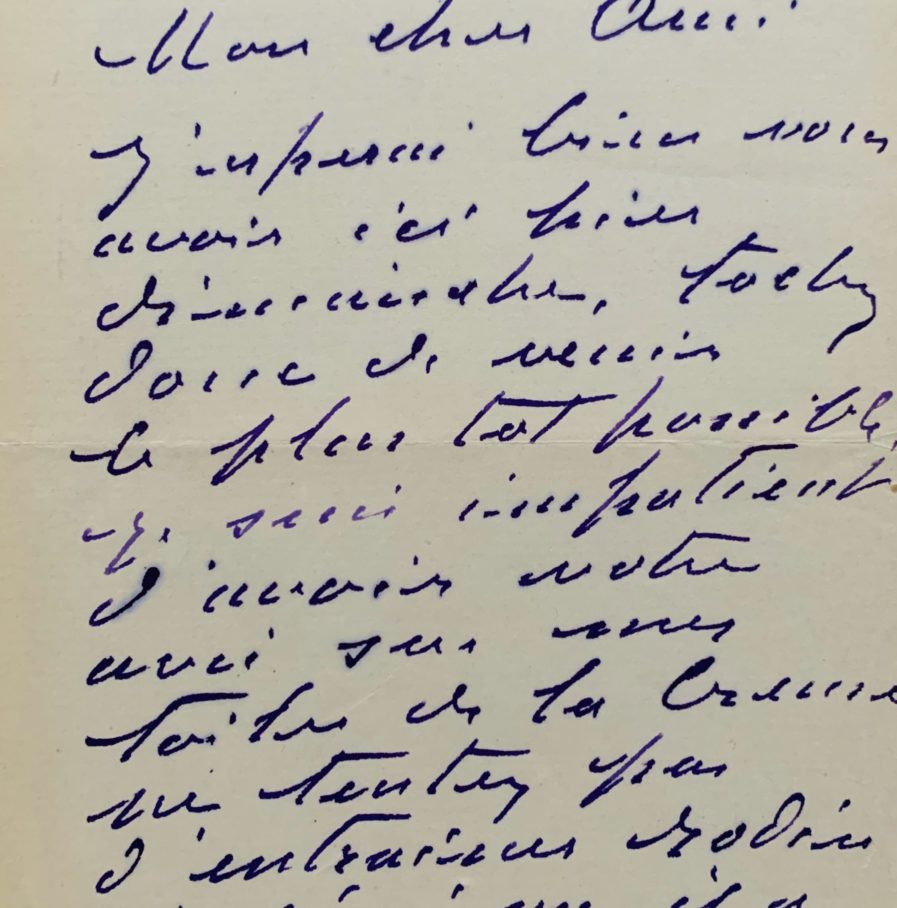 Mon cher Ami
J'espérai bien vous
avoir ici hier
dimanche, tachez
donc de venir
le plus tot possible,
je suis impatient
d'avoir votre
avis sur mes
toiles de la Creuse
ne tentez pas
d'entrainer Rodin
il a